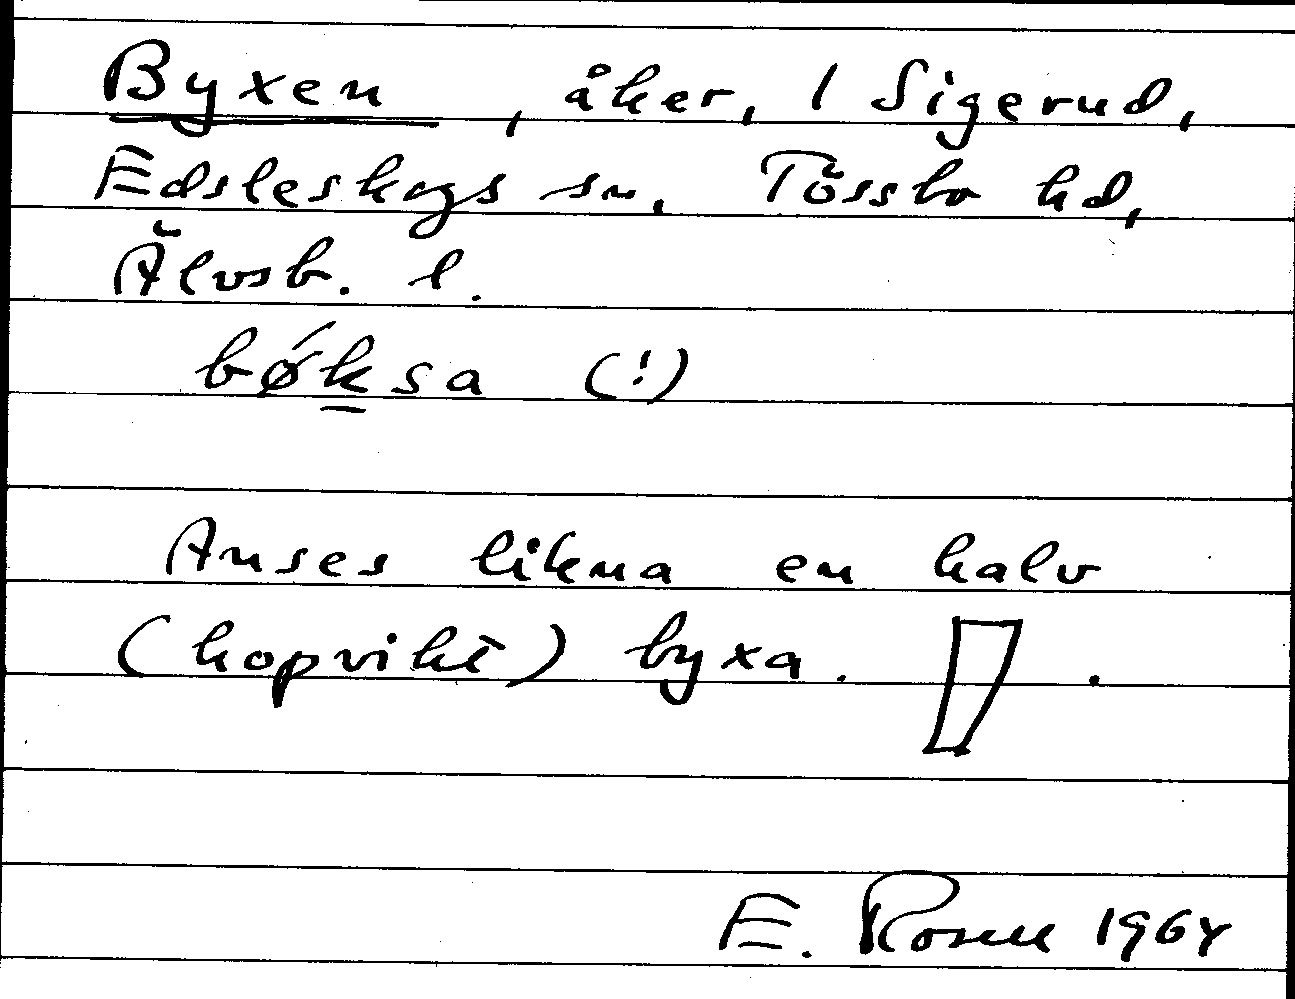 Byxen, åker, 1 Sigerud,
Edsleskogs sn, Tössbo hd,
Älvsb. l.
bǿksa (!)
Anses likna en halv
(hopvikt) byxa. .
E. Rosell 1964